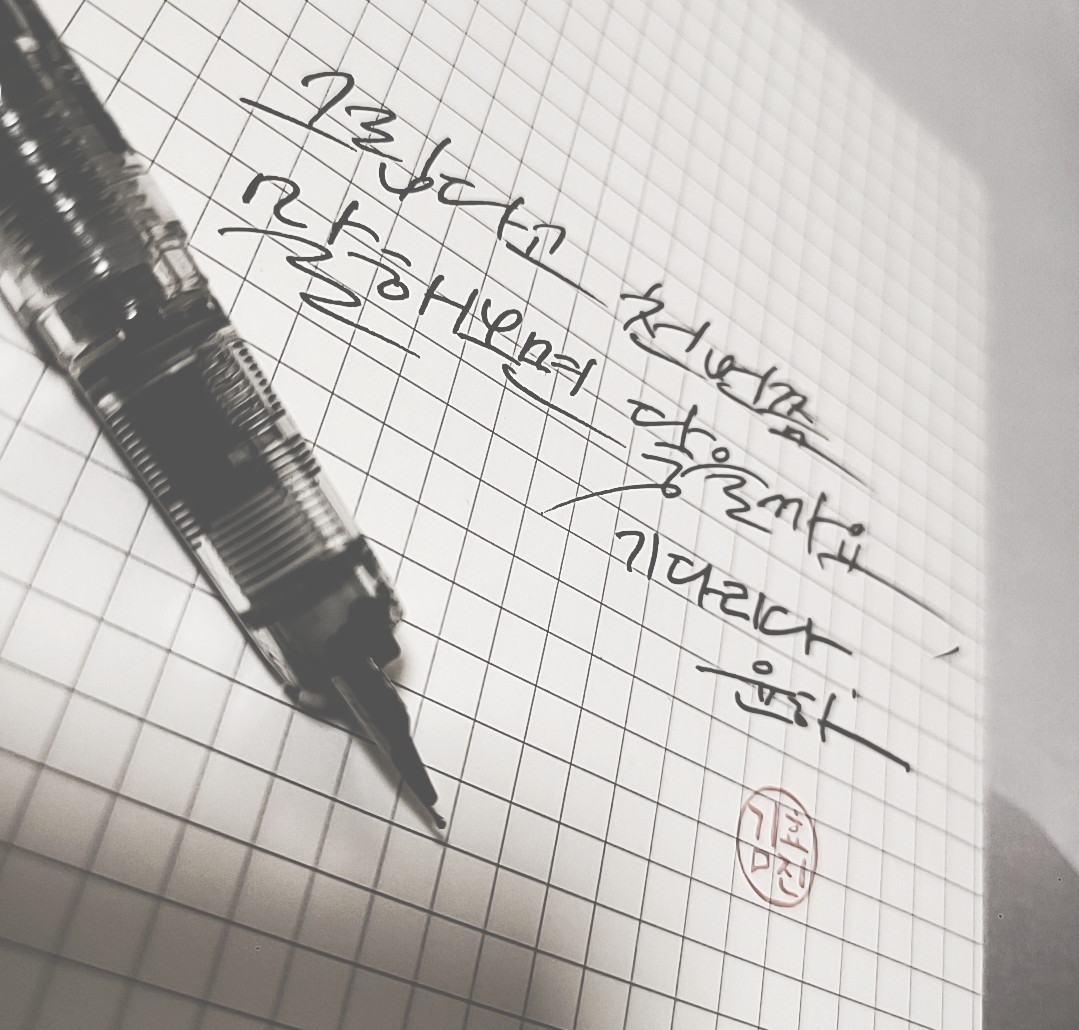 그립다고 천번쯤
말해보면 닿을까요,
기다리다
윤하
김효진